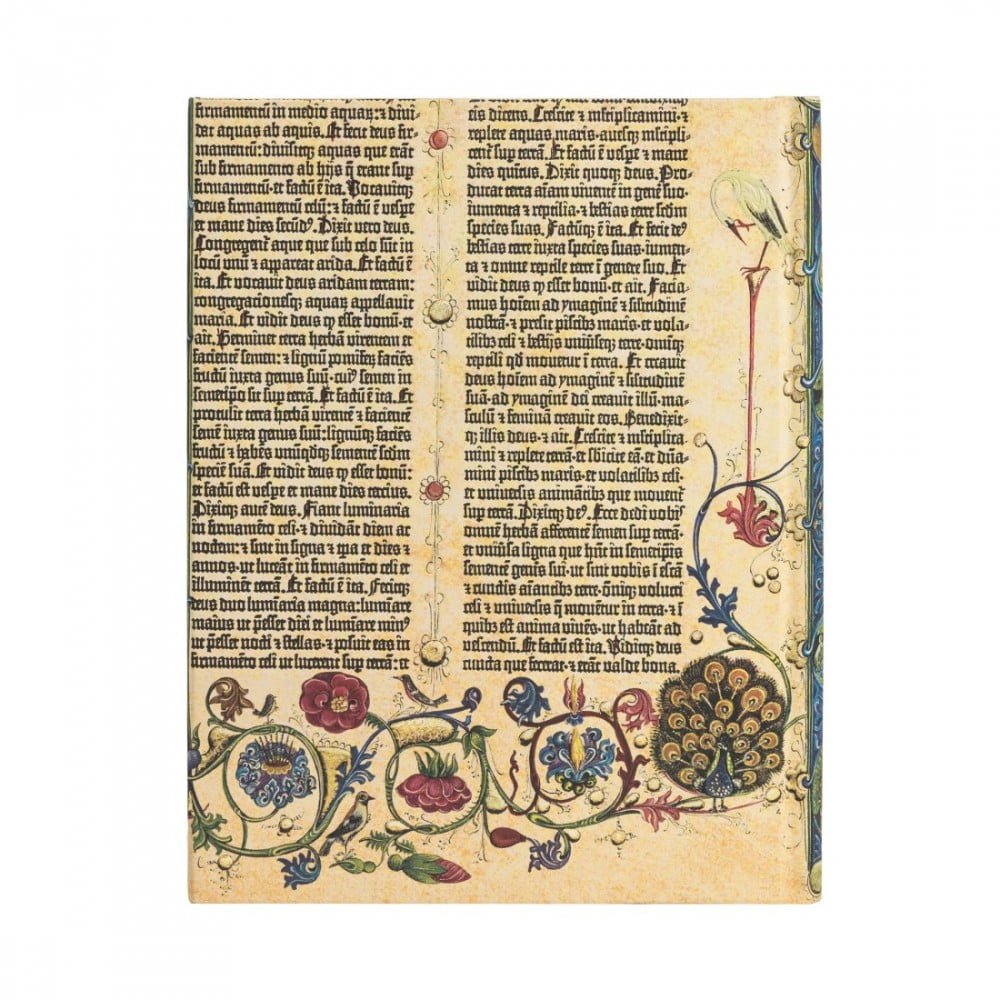 firmamentū in medio aquaꝝ: ⁊ divi⸗
dat aquas ab aquis. Et fecit deus fir⸗
mamentū: divisitqꝫ aquas que erāt
sub firmamento ab hijs q̄ erant sup
firmamentū· et factū ē ita. Vocavitqꝫ
deus firmamentū celū: ⁊ factū ē vespe
et mane dies secūdꝰ. Dixit vero deus.
Congregent̄ aque que sub celo sūt in
locū unū ⁊ appareat arida. Et factū ē
ita. Et vocavit deus aridam terram:
congregacionesqꝫ aquaꝝ appellavit
maria. Et vidit deus ꝙ esset bonū· et
ait. Germinet terra herbā virentem et
facientē semen: ⁊ lignū pomifeꝝ faciēs
fructū iuxta genus suū· cuiꝰ semen in
semetipo sit sup terrā. Et factū ē ita. Et
protulit terra herbā virentē ⁊ facientē
semē iuxta genus suū: lignūqꝫ faciēs
fructū ⁊ habēs unūqdqꝫ sementē scdm
speciē suā. Et vidit deus ꝙ esset bonū:
et factū est vespe et mane dies tercius.
Dixitqꝫ autē deus. Fiant luminaria
in firmamēto celi· ⁊ dividāt diem ac
noctem: ⁊ sint in signa ⁊ tpa et dies ⁊
annos· ut luceāt in firmamēto celi et
illuminēt terrā. Et factū ē ita. Fecitqꝫ
deus duo luminaria magna: lumīare
maius ut p̄esset diei et lumīare minꝰ
ut p̄esset nocti ⁊ stellas· ⁊ posuit eas in
firmamēto celi ut lucerent sup terrā: et
eis dicens. Crescite ⁊ mltiplicamini· ⁊
replete aquas maris· avesqꝫ mltipli⸗
cent̄ sup terrā. Et factū ē vespe ⁊ mane
dies quītus. Dixit quoqꝫ deus. Pro⸗
ducat terra aīam viventē in genē suo·
iumenta ⁊ reptilia· ⁊ bestias terre scdm
species suas. Factūqꝫ ē ita. Et fecit deꝰ
bestias terre iuxta species suas· iumen⸗
ta ⁊ omne reptile terre ī genere suo. Et
vidit deus ꝙ esset bonū· et ait. Facia⸗
mus hoīem ad ymaginē ⁊ silitudinē
nostrā· ⁊ presit piscibꝫ maris· et vola⸗
tilibꝫ celi ⁊ bestijs univseqꝫ terre· omīqꝫ
reptili qd movetur ī terra. Et creavit
deus hoīem ad ymaginē ⁊ silitudinē
suā· ad ymaginē dei creavit illū· ma⸗
sculū ⁊ feminā creavit eos. Benedixit⸗
qꝫ illis deus· ⁊ ait. Crescite ⁊ mltiplica⸗
mini ⁊ replete terrā· et sbicite eā· et dña⸗
mini piscibꝫ maris· et volatilibꝫ celi·
et universis animātibꝫ que movent̄
sup terrā. Dixitqꝫ deꝰ. Ecce dedi vobis
omnē herbā afferentē semen sup terrā·
et univsa ligna que hñt in semetipis
sementē genīs sui· ut sint vobis ī escā
⁊ cunctis aīantibꝫ terre· omīqꝫ volucri
celi ⁊ universis q̄ movētur in terra· ⁊ ī
quibꝫ est anima vivēs· ut habeāt ad
vescendū. Et factū est ita. Viditqꝫ deus
cuncta que fecerat· ⁊ erāt valde bona.